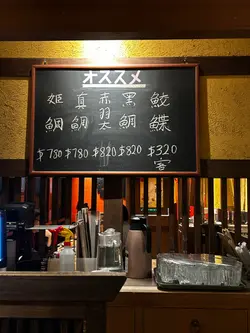 オススメ
姫鯛
真鯛
赤翌
黒鯛
鮫鰈
$780 $780 $820 $820 $320
客